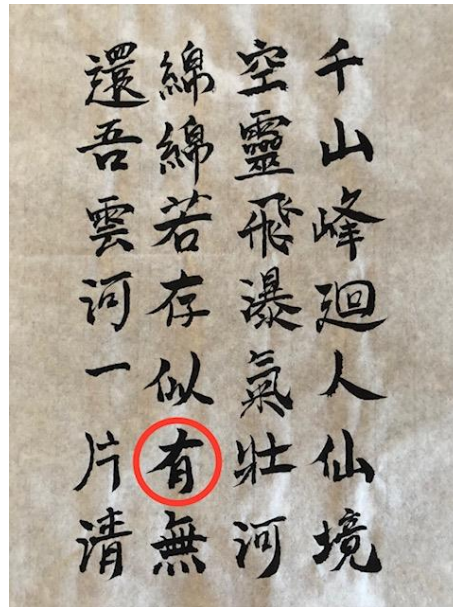 千山峰迴人仙境
空靈飛瀑氣壯河
綿綿若存似有無
還吾雲河一片清